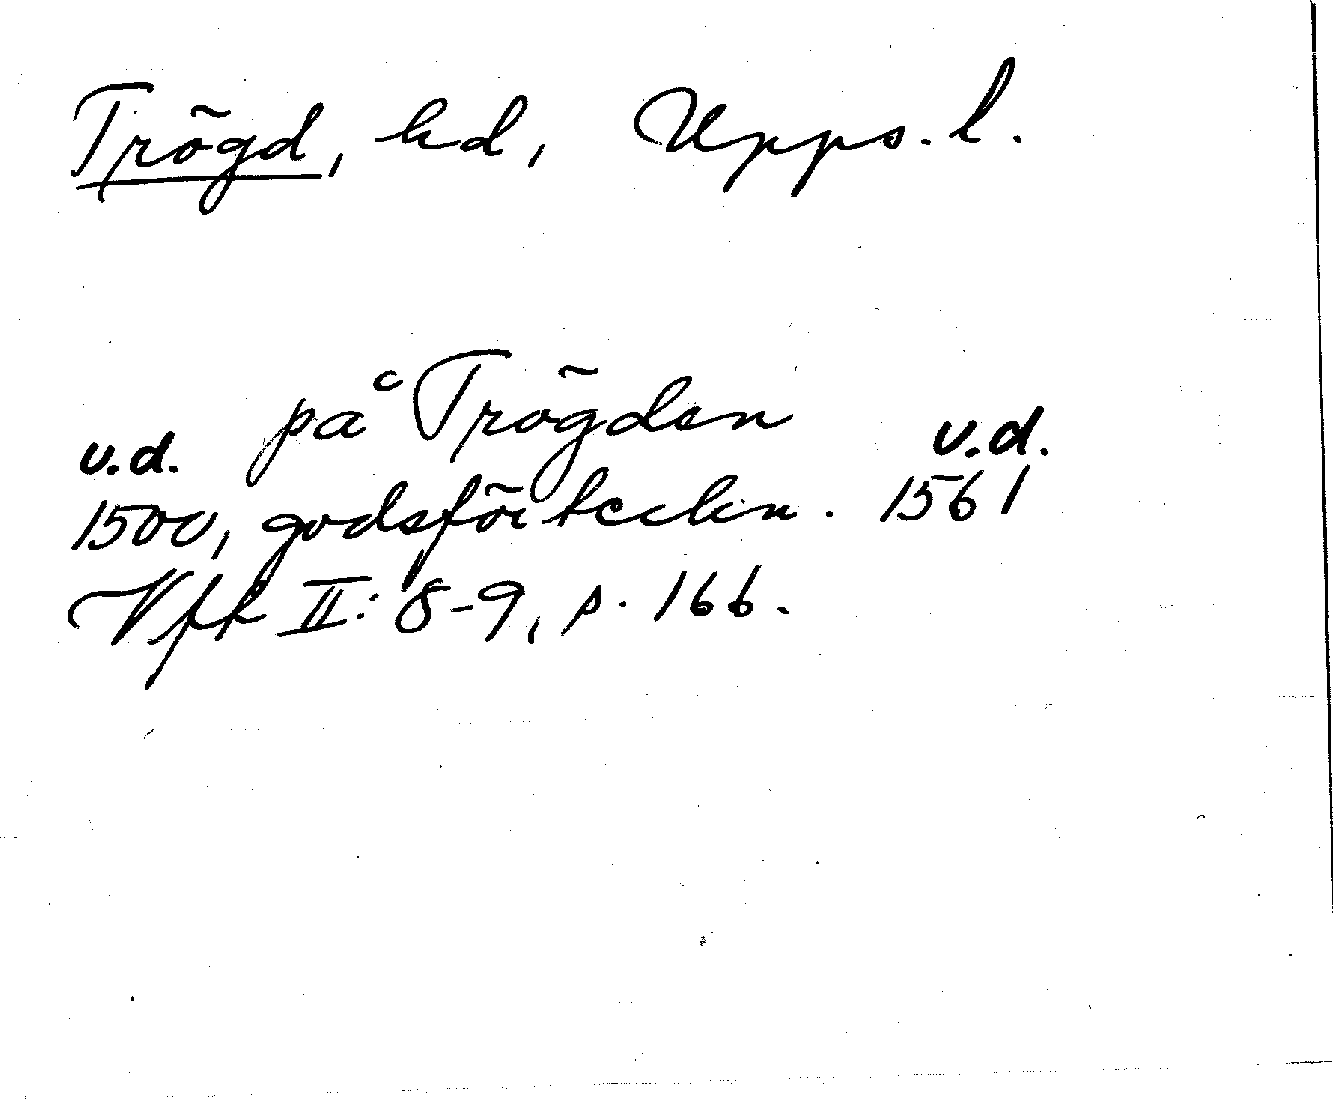 Trögd, hd, Upps. l.
på Trögden
v.d. v.d.
1500, godsförteckn. 1561
Vfr II: 8-9, s. 166.